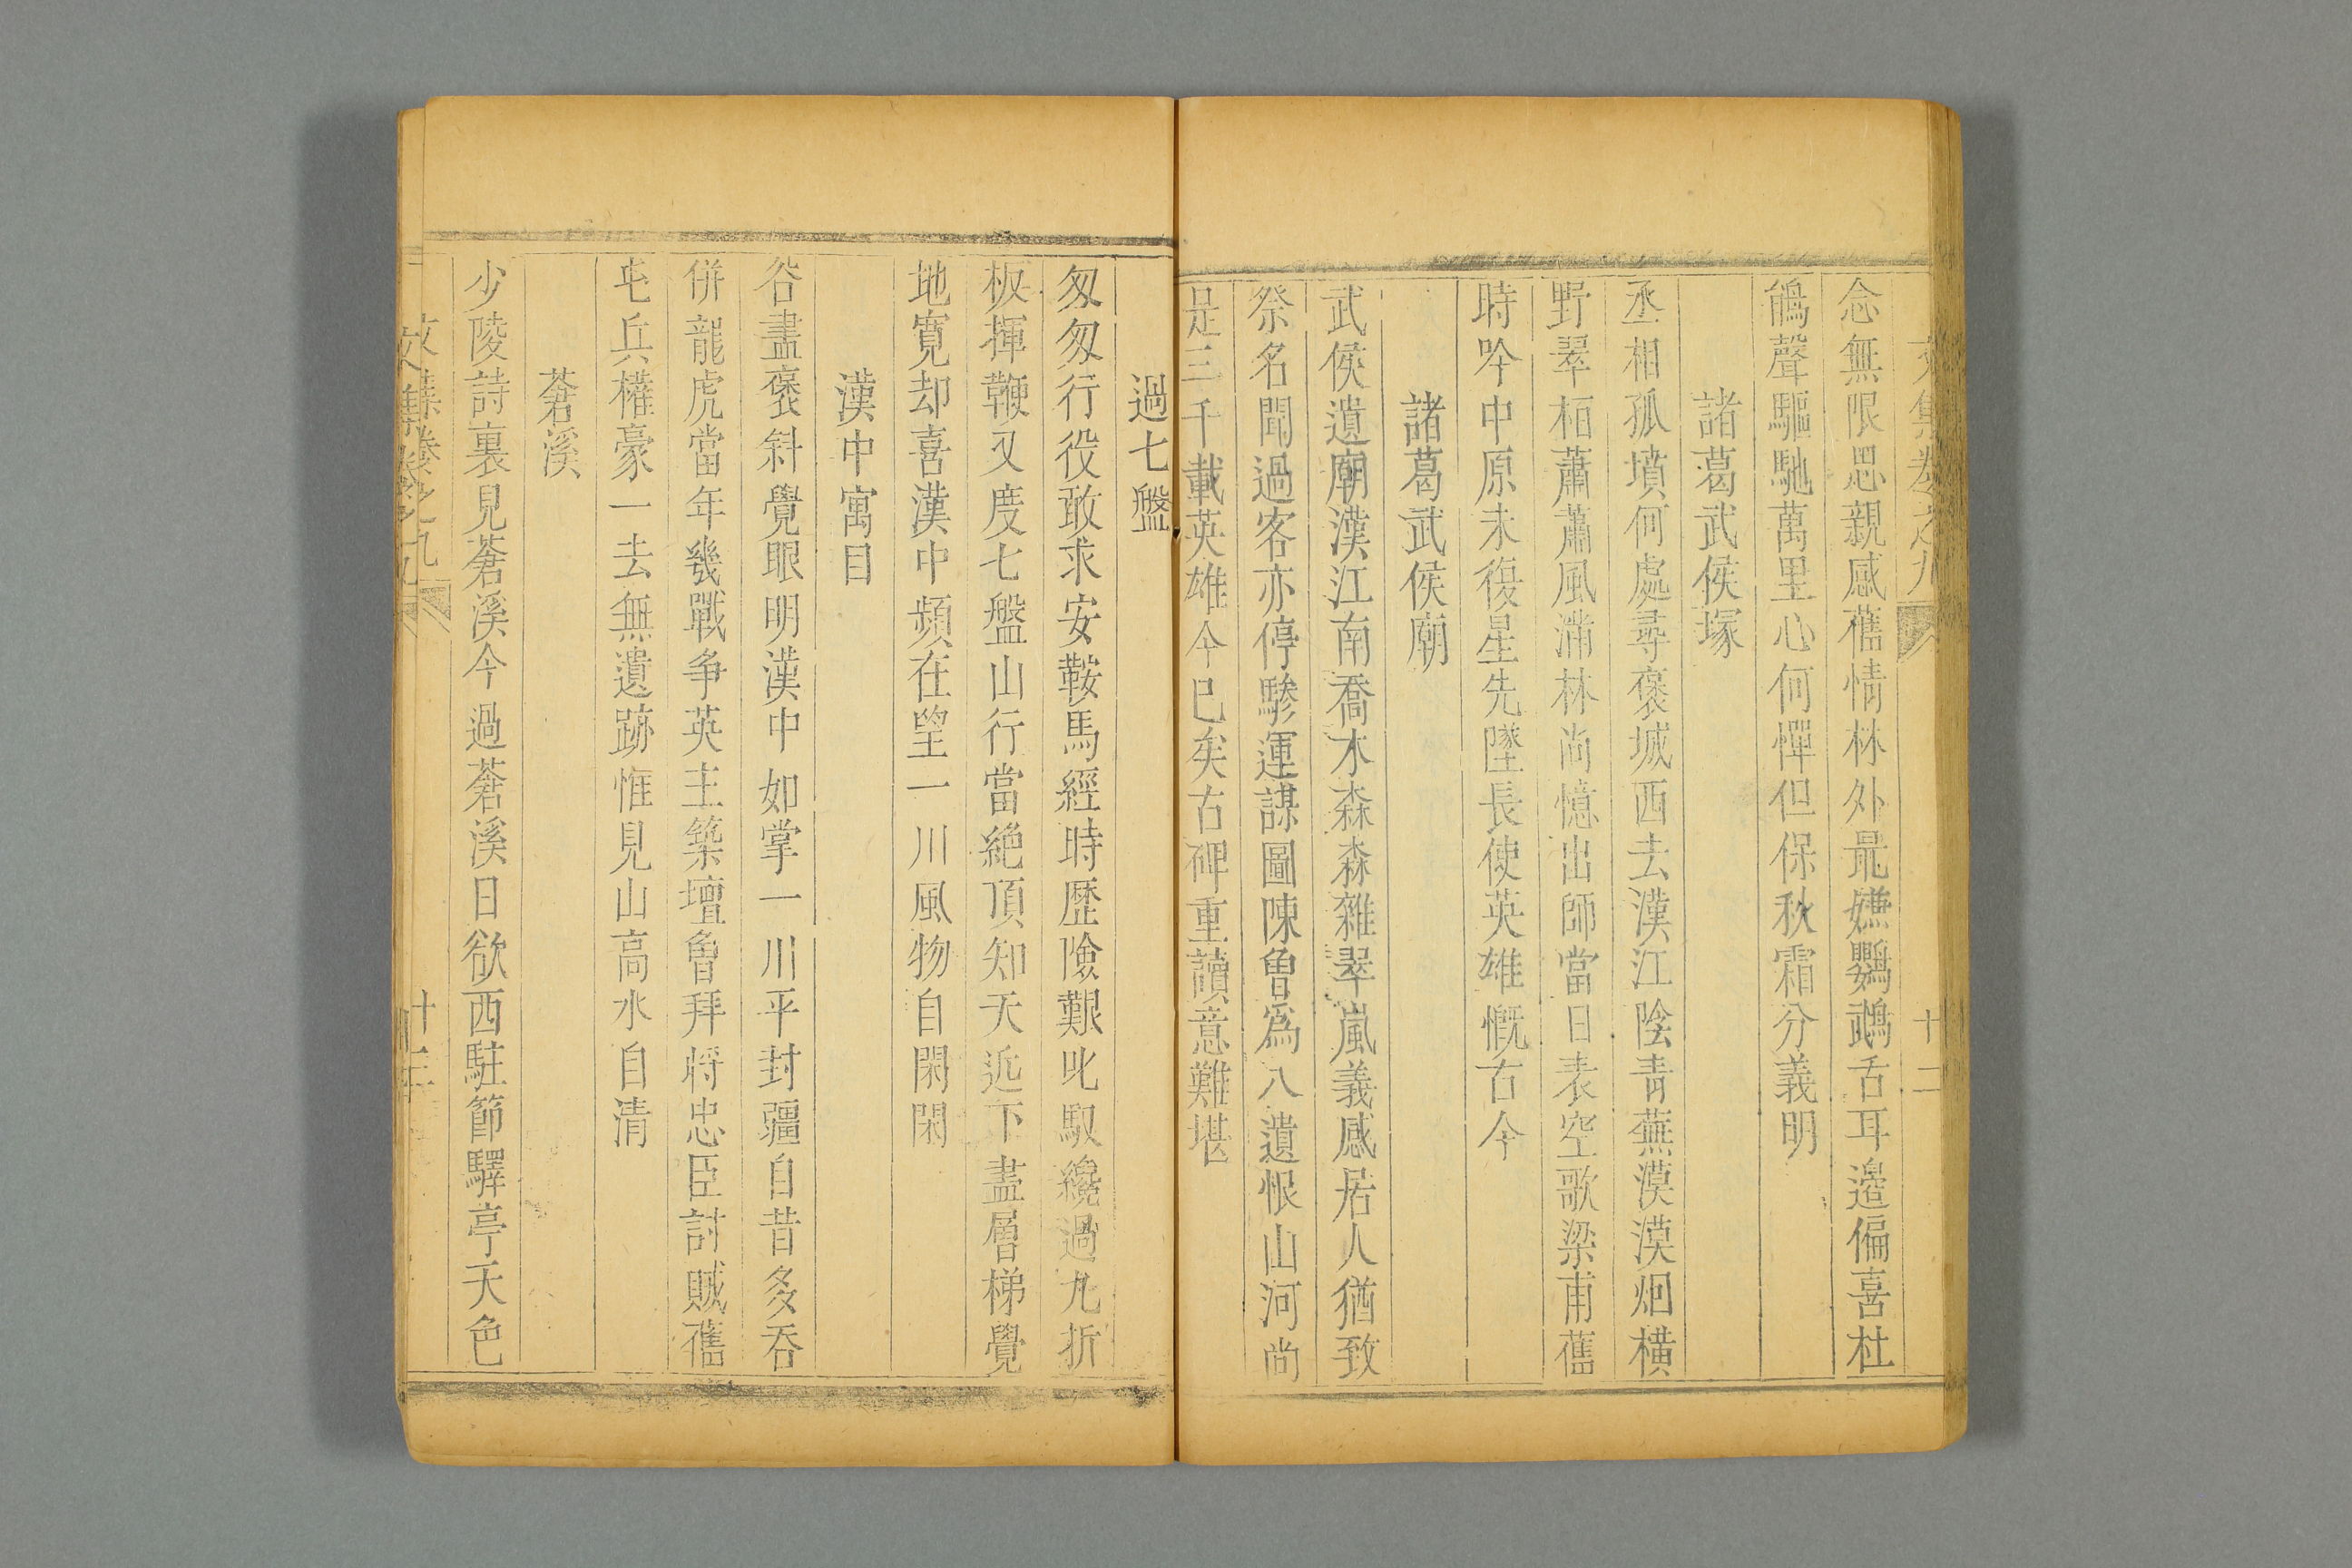 文集卷之九 十二
念無限思親感舊情林外最嫌鸚鵡舌耳邉偏喜杜
鵑聲驅馳萬里心何憚但保秋霜分義明
諸葛武侯塚
丞相孤墳何處尋褒城西去漢江陰青蕪漠漠烟橫
野翠栢蕭蕭風滿林尚憶出師當日表空歌梁甫舊
時吟中原未復星先墜長使英雄慨古今
諸葛武侯廟
武侯遺廟漢江南喬木森森雜翠嵐義感居人猶致
祭名聞過客亦停驂運謀圖陳魯爲八遺恨山河尚
是三千載英雄今已矣古碑重讀意難堪
過七盤
匆匆行役敢求安鞍馬經時歴險艱叱馭纔過九折
板揮鞭又度七盤山行當絶頂知天近下盡層梯覺
地寛却喜漢中頻在望一川風物自閑閑
漢中寓目
谷盡褒斜覺眼明漢中如掌一川平封疆自昔多吞
併龍虎當年幾戰争英主築壇魯拜將忠臣討賊舊
屯兵權豪一去無遺跡惟見山高水自清
蒼溪
少陵詩裏見蒼溪今過蒼溪日欲西駐節驛亭天色
文集卷之九 十三